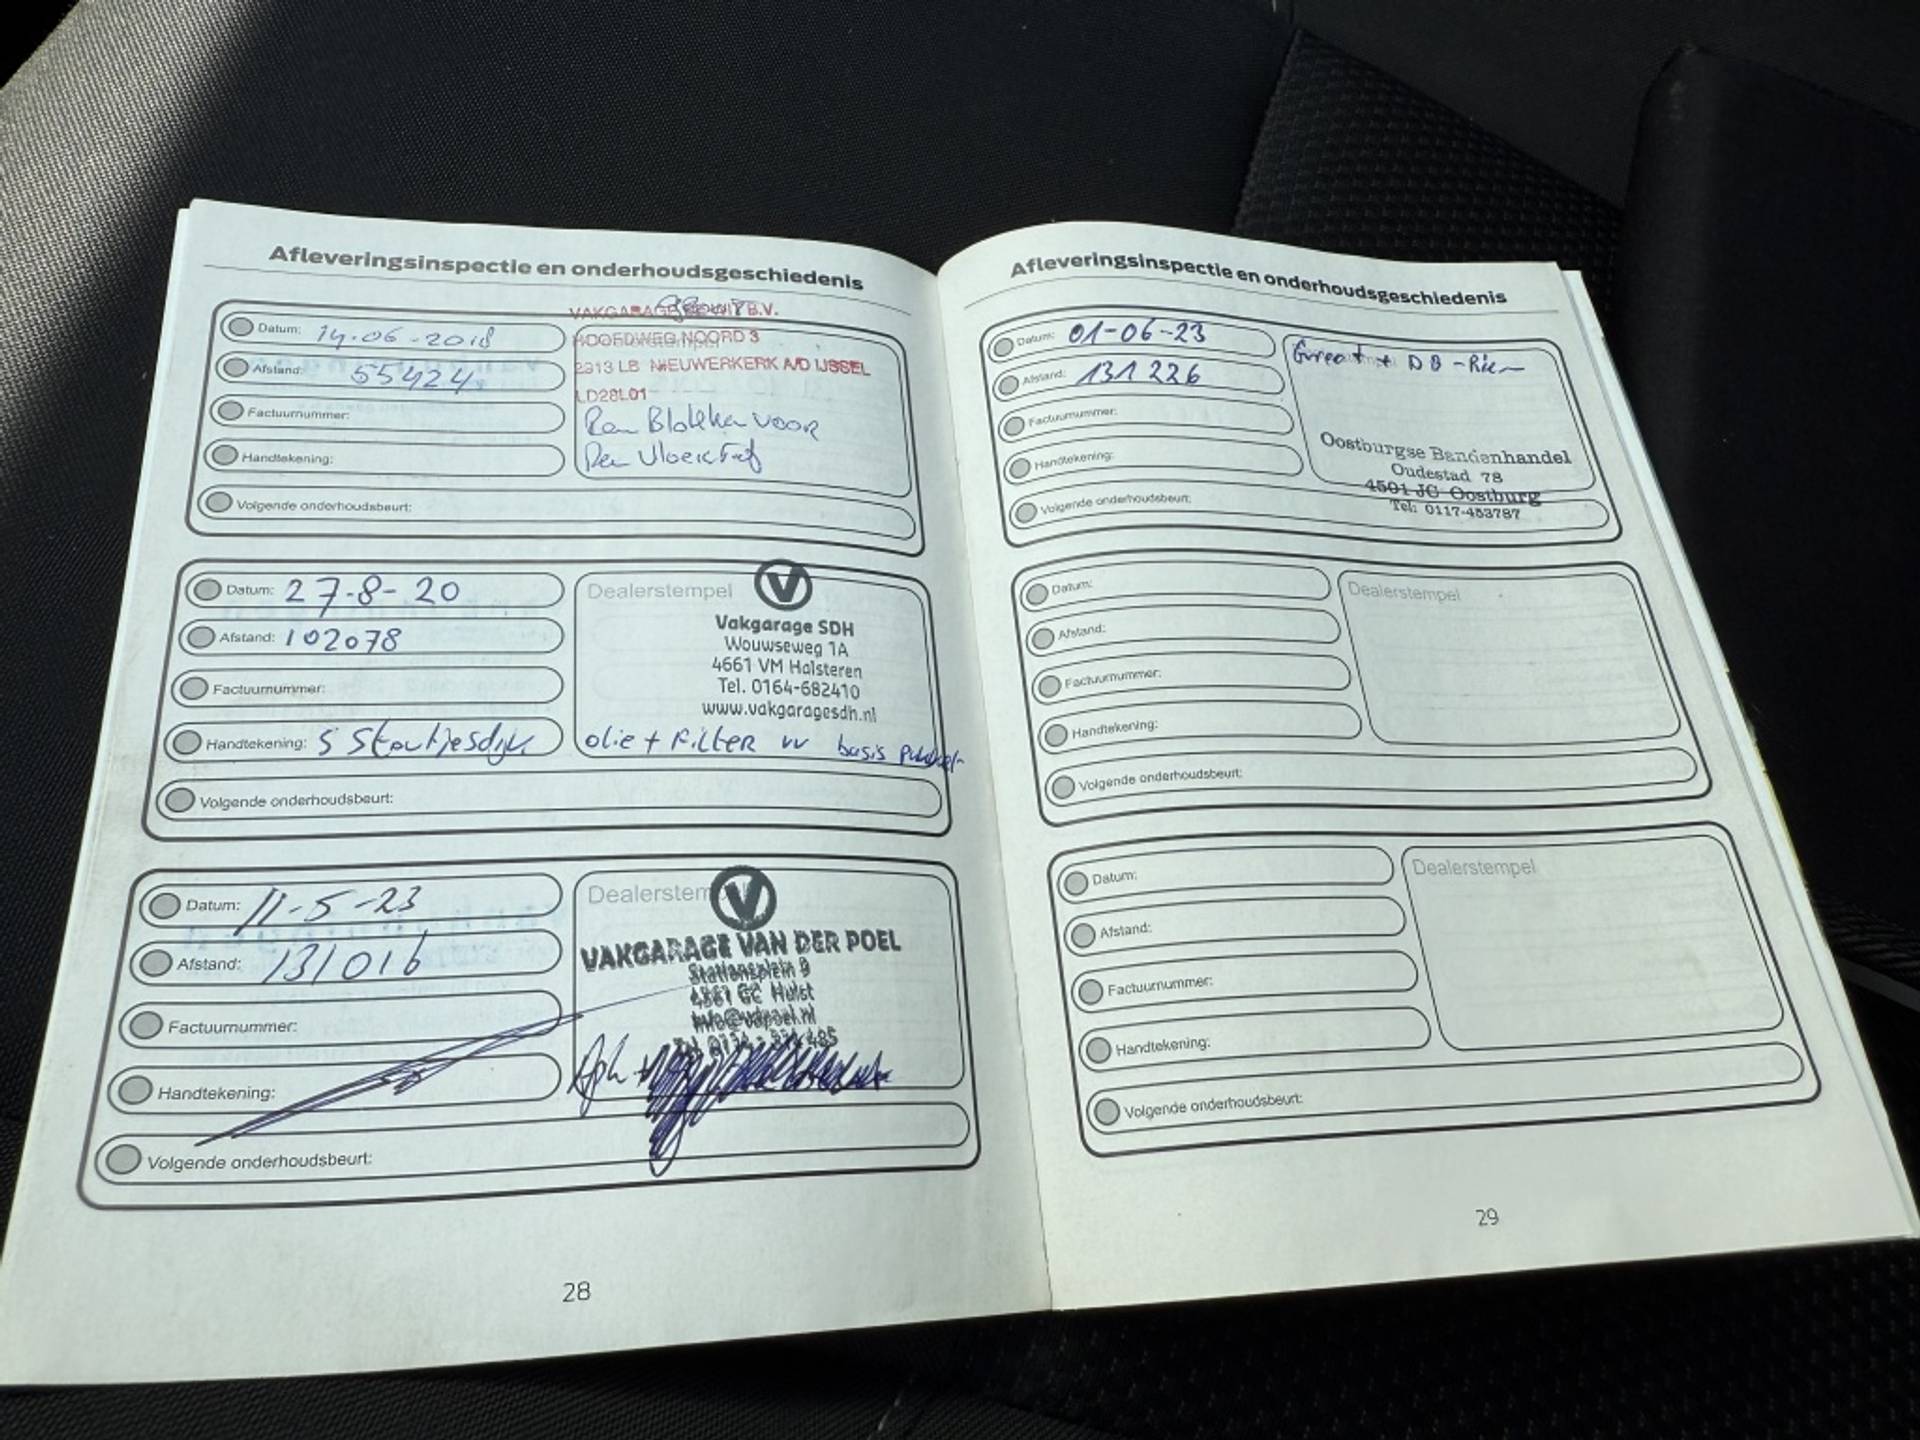 Afleveringsinspectie en onderhoudsgeschiedenis
Datum: 14-06-2018
Afstand: 55424
Factuurnummer:
Handtekening:
Volgende onderhoudsbeurt:
VAKGARAGE B.V.
HOOFDWEG NOORD 3
2913 LB NIEUWERKERK A/D IJSSEL
LD28L01
Rem Blokken voor
Rem Vloeistof
Datum: 27-8-20
Afstand: 102078
Factuurnummer:
Handtekening: S Stoutjesdijk
Volgende onderhoudsbeurt:
Dealerstempel
Vakgarage SDH
Wouwseweg 1A
4661 VM Halsteren
Tel. 0164-682410
www.vakgaragesdh.nl
olie + Filter vv basis
Datum: 11-5-23
Afstand: 131016
Factuurnummer:
Handtekening:
Volgende onderhoudsbeurt:
Dealerstempel
VAKGARAGE VAN DER POEL
Stationsplein 9
4561 GC Hulst
28
Afleveringsinspectie en onderhoudsgeschiedenis
Datum: 01-06-23
Afstand: 131 226
Factuurnummer:
Handtekening:
Volgende onderhoudsbeurt:
+ DB-Riem
Oostburgse Bandenhandel
Oudestad 78
4501 JC Oostburg
Tel: 0117-453787
Datum:
Afstand:
Factuurnummer:
Handtekening:
Volgende onderhoudsbeurt:
Dealerstempel
Datum:
Afstand:
Factuurnummer:
Handtekening:
Volgende onderhoudsbeurt:
Dealerstempel
29